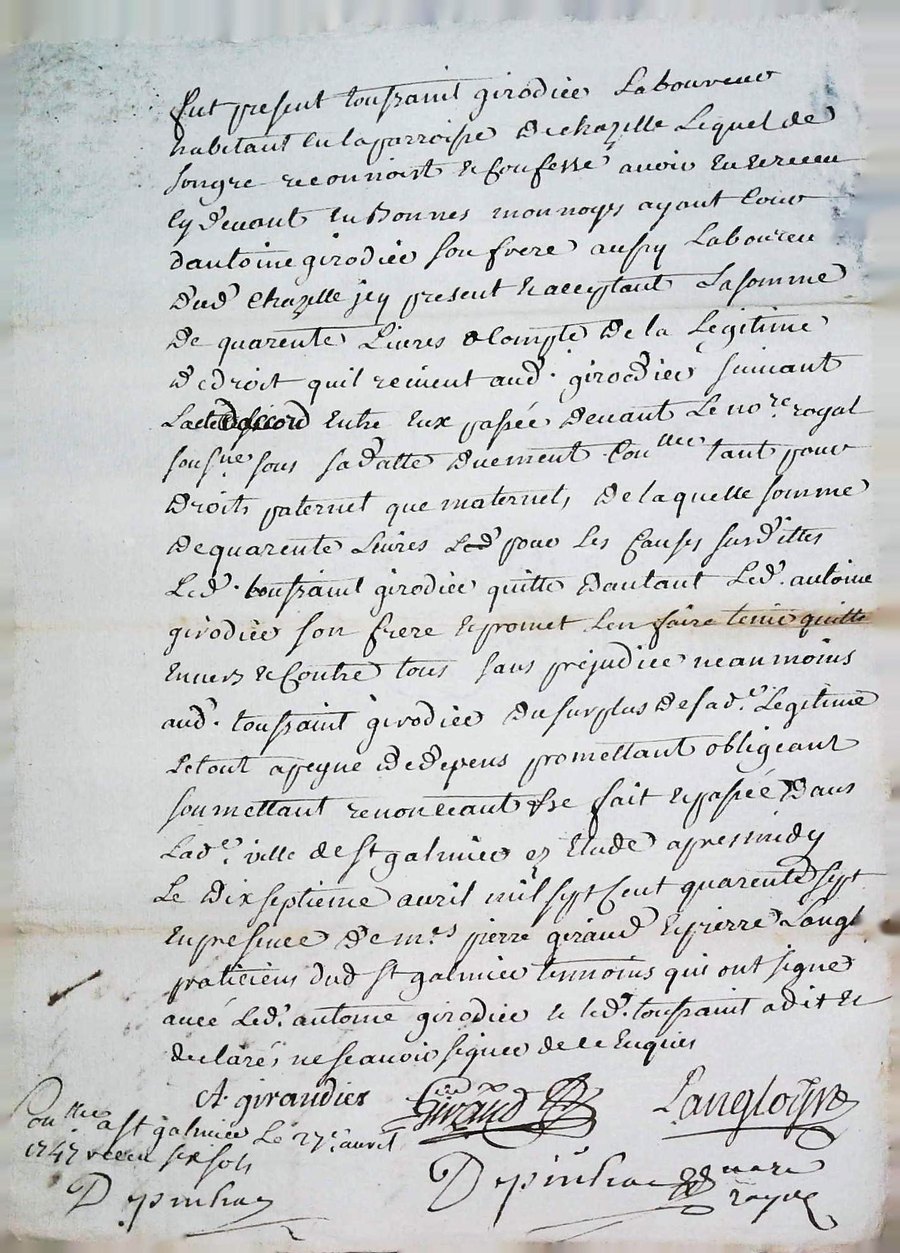 fut present toussaint girodiée Laboureur
habitant en la parroisse De chazelle Lequel de
songre reconnoist & Confesse avoir eu & receu
Cy devant en Bonnes monnoys ayant Cour
dantoine girodiée son frere aussy Laboureu
Dud chazelle jcy present & acceptant La somme
De quarente Livres a Compte De la Legitime
De droit quil revient aud. girodiée suivant
Lacte Daccord Entre Eux passée Devant Le nore royal
sousne sous sa datte Duement Conllee tant pour
Droits paternel que maternel, De laquelle somme
De quarente Livres pour Les Causes surdittes
Led. toussaint girodiée quitte Dautant Led. antoine
girodiée son frere & promet Len faire tenir quitte
Envers & Contre tous sans préjudice neanmoins
aud. toussaint girodiée Du surplus De sade Legitime
Le tout apeyne De depens promettant obligeant
soumettant renonceant &c fait & passée Dans
Lade. ville de st galmier ez Etude apresmidy
Le Dix septieme avril mil sept Cent quarente sept
En presence De mes pierre giraud & pierre Langl
praticiens dud st galmier temmoins qui ont signe
avec Led. antoine girodiée & led. toussaint a dit &
declarés ne scavoir signer de ce Enquis
A giraudier Giraud Langloys
Conllee a st galmier Le 27e avril
1747 receu six sols
Depinhac Depinhac nore
royal